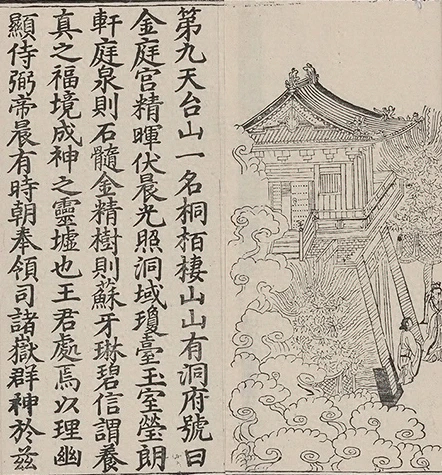 第九天台山一名桐栢棲山山有洞府號曰
金庭宫精暉伏晨光照洞域瓊臺玉室瑩朗
軒庭泉則石髓金精樹則蘇牙琳碧信謂養
真之福境成神之靈墟也王君處焉以理幽
顯侍弼帝晨有時朝奉領司諸嶽群神於兹